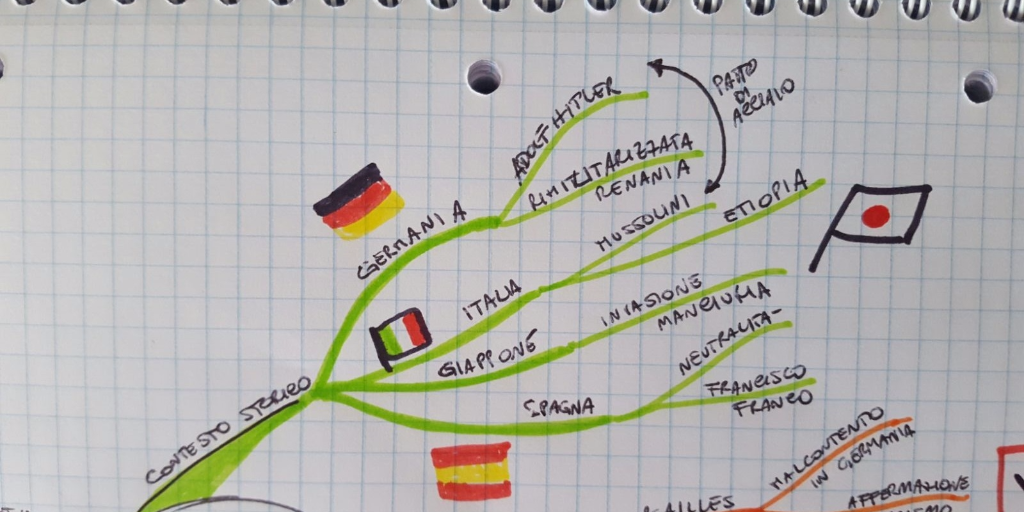 PATTO
DI
ACCIAIO
ADOLF HITLER
RIMILITARIZZATA
RENANIA
GERMANIA
MUSSOLINI
ETIOPIA
ITALIA
INVASIONE
MANCIURIA
GIAPPONE
NEUTRALITA-
FRANCISCO
FRANCO
SPAGNA
CONTESTO STORICO
MALCONTENTO
IN GERMANIA
AFFERMAZIONE